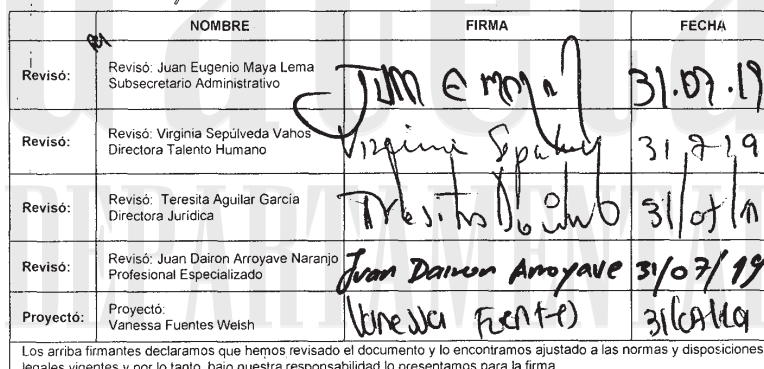 NOMBRE FIRMA FECHA
Revisó: Revisó: Juan Eugenio Maya Lema
Subsecretario Administrativo
31.07.19
Revisó: Revisó: Virginia Sepúlveda Vahos
Directora Talento Humano
Virginia Sepulv 31 7 19
Revisó: Revisó: Teresita Aguilar García
Directora Jurídica
Teresita Aguilar 31/07/19
Revisó: Revisó: Juan Dairon Arroyave Naranjo
Profesional Especializado
Juan Dairon Arroyave 31/07/19
Proyectó: Proyectó:
Vanessa Fuentes Welsh
Vanessa Fuentes
Los arriba firmantes declaramos que hemos revisado el documento y lo encontramos ajustado a las normas y disposiciones
legales vigentes y por lo tanto, bajo nuestra responsabilidad lo presentamos para la firma.
DEPARTAMENTAL